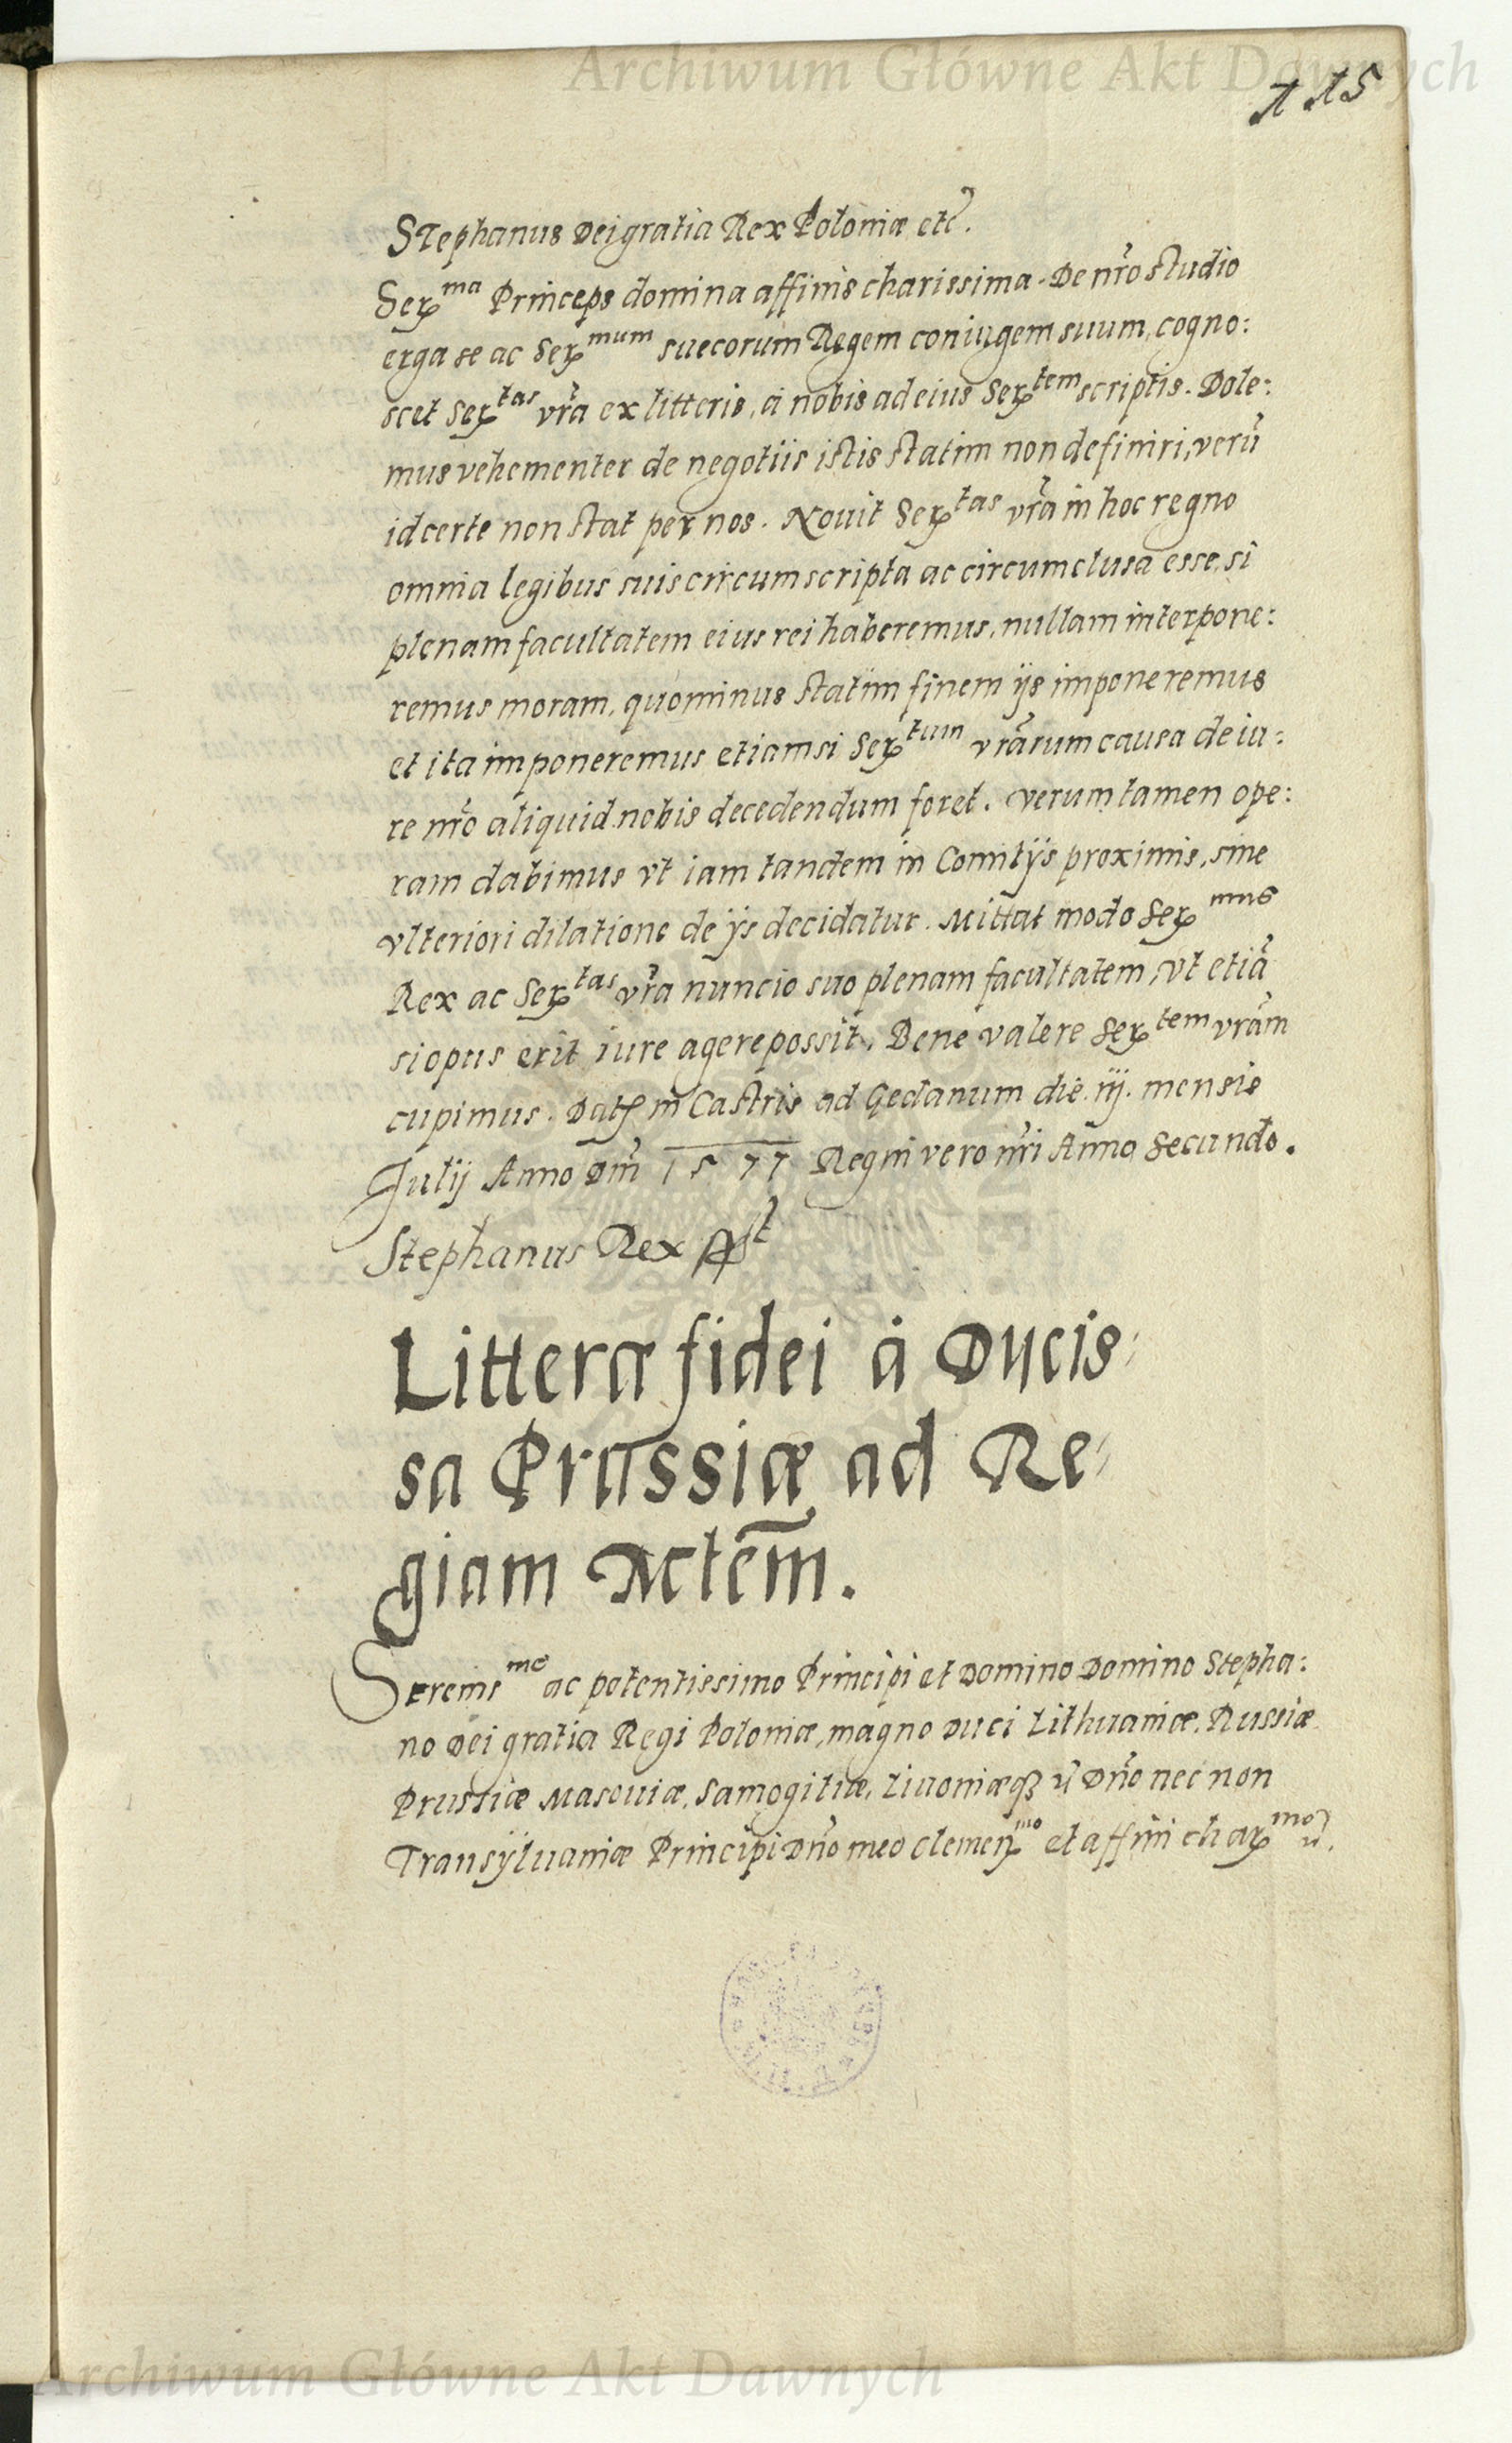 Archiwum Główne Akt Dawnych
115
Stephanus Dei gratia Rex Poloniæ etc.
Ser^ma Princeps domina affinis charissima. De nr̃o studio
erga se ac Ser^mum suecorum Regem coniugem suum, cogno:
scet Ser^tas vr̃a ex litteris, à nobis ad eius Ser^tem scriptis. Dole:
mus vehementer de negotiis istis statim non definiri, verũ
id certe non stat per nos. Nouit Ser^tas vr̃a in hoc regno
omnia legibus suis circumscripta ac circumclusa esse, si
plenam facultatem eius rei haberemus, nullam interpone:
remus moram, quominus statim finem ijs imponeremus
et ita imponeremus etiamsi Ser^tum vr̃arum causa de iu:
re nr̃o aliquid nobis decedendum foret. Verum tamen ope:
ram dabimus vt iam tandem in Comitijs proximis, sine
vlteriori dilatione de ijs decidatur. Mittat modo Ser^mus
Rex ac Ser^tas vr̃a nuncio suo plenam facultatem, vt etiã
si opus erit iure agere possit. Bene valere Ser^tem vr̃am
cupimus. Dat in Castris ad Gedanum die iij. mensis
Julij Anno Dñi 1577 Regni vero nr̃i Anno secundo.
Stephanus Rex sst
Litteræ fidei à Ducis-
sa Prussiæ ad Re-
giam Mctem̃.
Serenis^mo ac potentissimo Principi et Domino Domino Stepha:
no Dei gratia Regi Poloniæ, magno Duci Lithuaniæ, Russiæ
Prussiæ Masouiæ, Samogitiæ, Liuoniæq₃ Dño nec non
Transyluaniæ Principi Dño meo clemen^mo et affini char^mo
Archiwum Główne Akt Dawnych